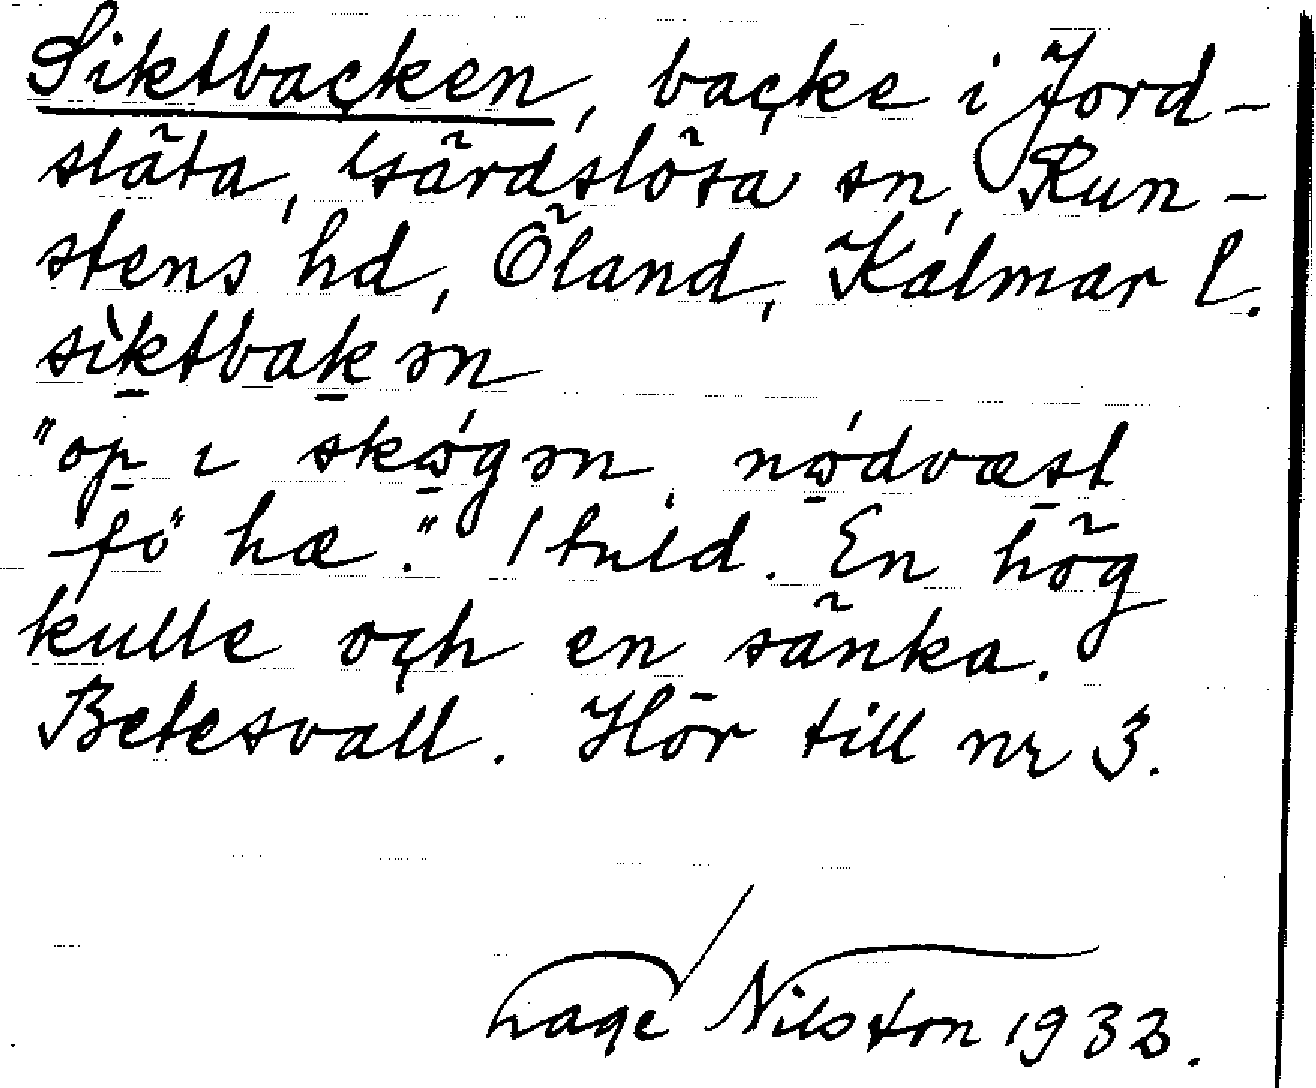 Siktbacken, backe i Jord-
släta, Gärdslösa sn, Run-
stens hd, Öland, Kalmar l.
siktbakən
"op ɩ skøgən, nødvæst
fö hæ." Huld. En hög
kulle och en sänka.
Betesvall. Hör till nr 3.
Lage Nilsson 1933.